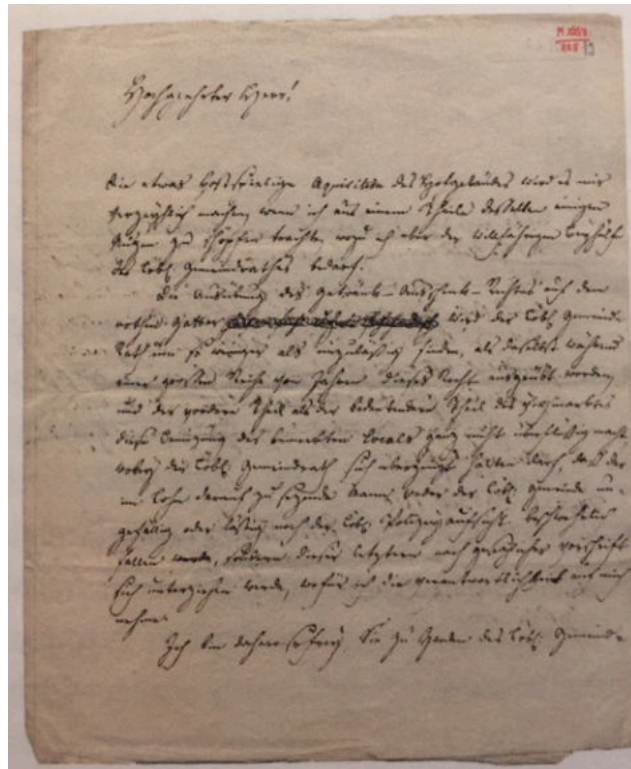 Hochgeehrter Herr!
Die etwas kostspielige Aquisition des Hofgebäudes wird es mir
verzeihlich machen, wenn ich aus einem Theile desselben einigen
Nutzen zu schöpfen trachte, wozu ich aber der willfährigen Beyhülfe
des Löbl. Gemeindrathes bedarf.
Die Ausübung des Getränk-Ausschenk-Rechtes auf dem
rothen Gatter wird der Löbl. Gemeind-
Rath um so weniger als unzulässig finden, als daselbst während
einer grossen Reihe von Jahren dieses Recht ausgeübt worden,
und der vordere Theil als der bedeutendere Theil des
diese Benutzung des bemerkten Locals ganz nicht überflüssig macht,
wobey der Löbl. Gemeindrath sich überzeugt halten darf, daß der
im Lohn darauf zu setzende Mann weder der Löbl. Gemeinde un-
gefällig oder lästig noch der Löbl. Polizeyaufsicht beschwerlich
fallen werde, sondern dieser letztern nach Vorschrift
sich unterziehen werde, wofür ich die Verantwortlichkeit auf mich
nehme.
Ich bin daher so frey, Sie zu Handen des Löbl. Gemeind-